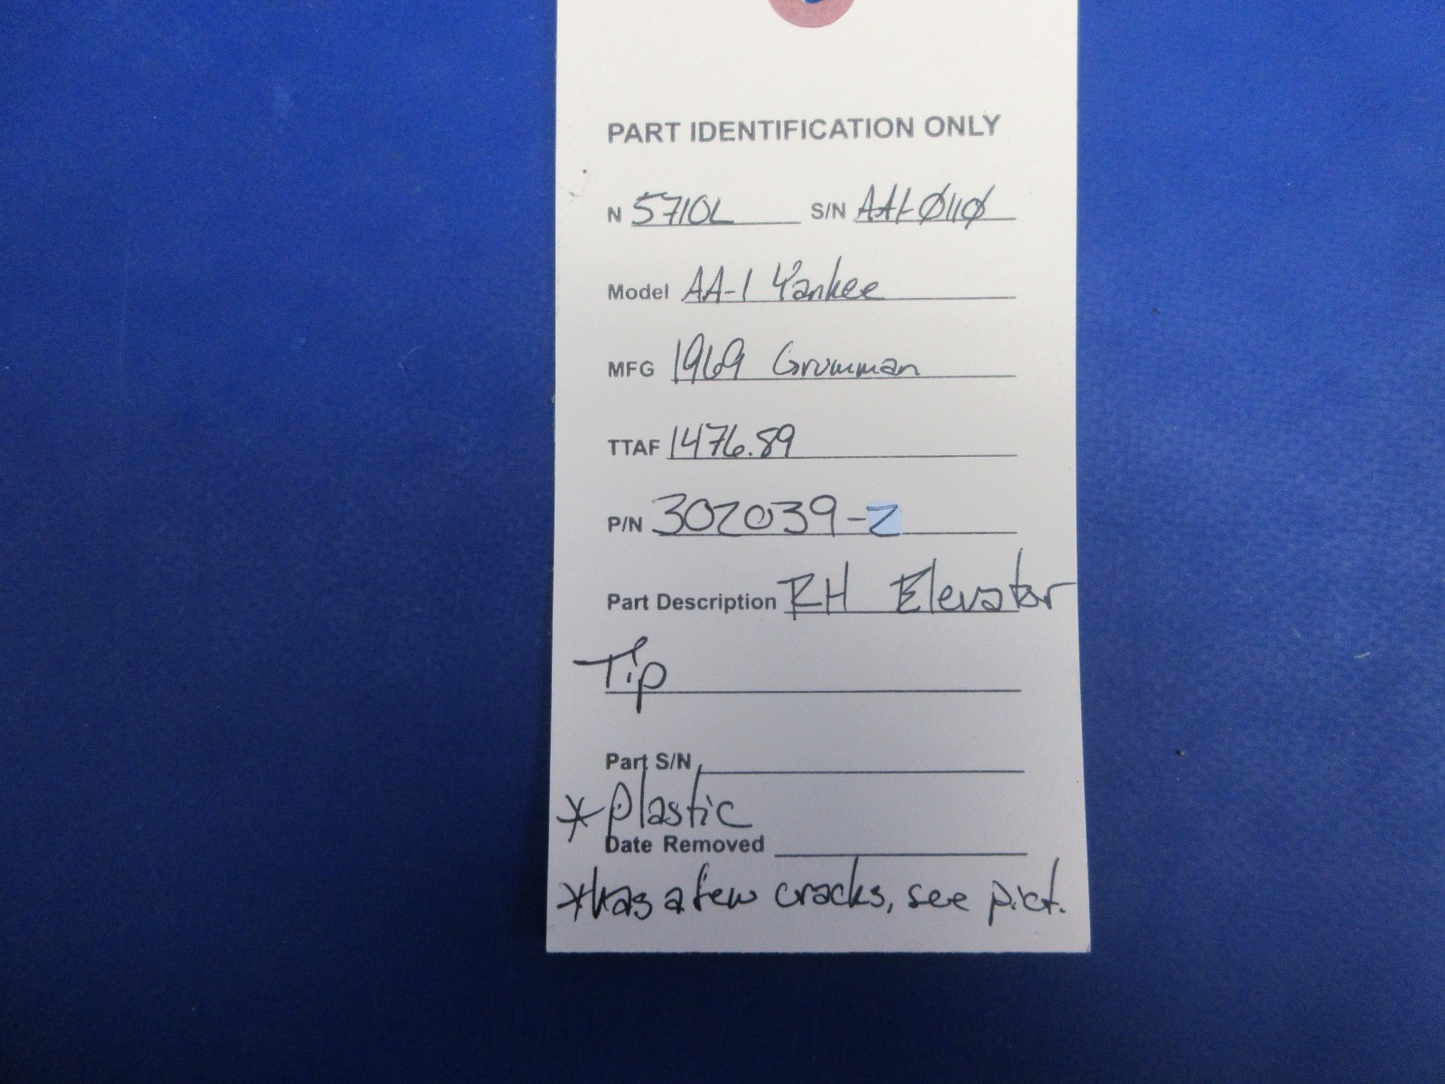 PART IDENTIFICATION ONLY
N 5710L S/N AA1-0110
Model AA-1 Yankee
MFG 1969 Grumman
TTAF 1476.89
P/N 302039-2
Part Description RH Elevator
Tip
Part S/N
*Plastic
Date Removed
*has a few cracks, see pict.